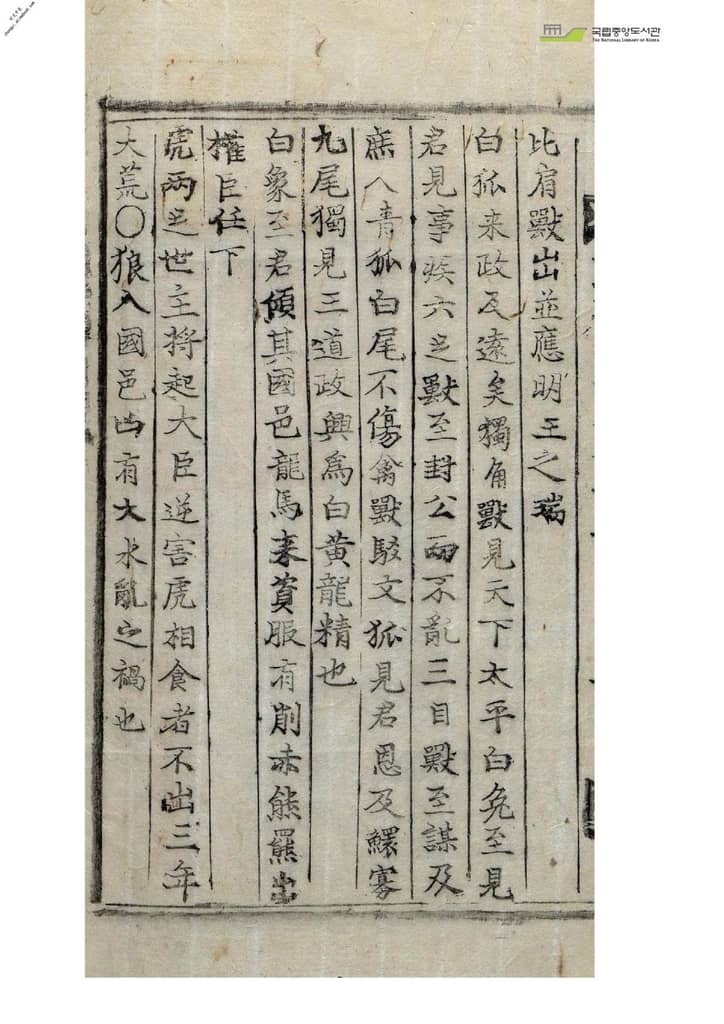 국립중앙도서관
THE NATIONAL LIBRARY OF KOREA
比肩獸出並應明王之瑞
白狐来政及遠矣獨角獸見天下太平白兔至見
君見事疾六足獸至封公而不亂三目獸至謀及
庶人青狐白尾不傷禽獸駁文狐見君恩及鰥寡
九尾獨見三道政興爲白黄龍精也
白象至君傾其國邑龍馬来賁服有削赤熊羆出
權臣任下
虎兩足世主将起大臣逆害虎相食者不出三年
大荒〇狼入國邑凶有大水亂之禍也